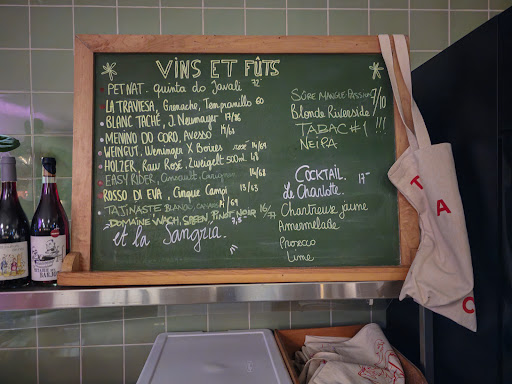 VINS ET FÛTS
PETNAT. Quinta do Javali 72
LA TRAVIESA, Grenache, Tempranillo 60
BLANC TACHÉ, J. Neumayer 17/76
MENINO DO CORO, Avesso 14/63
WEINGUT, Weninger X Boires rosé 14/64
HOLZER, Raw Rosé, Zweigelt 500ml 48
EASY RIDER, Cinsault, Carignan 14/64
ROSSO DI EVA, Cinque Campi 15/63
TAJINASTE BLANCO, CANARIES 14/69
DOMAINE WACH, SPEEN, PINOT NOIR 16/77
et la Sangria. 7,5
SÛRE MANGUE-PASSION 7/10
Blonde Riverside
TABAC #1 !!!
NEIPA
COCKTAIL. 17-
Le Charlotte.
Chartreuse jaune
Amermelade
Prosecco
Lime
TAC